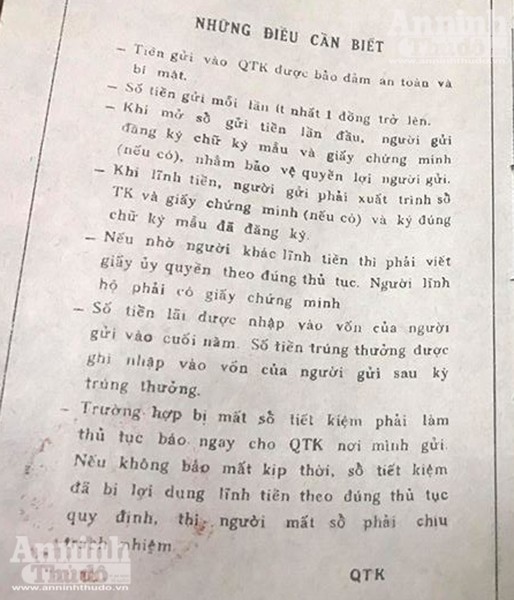 Anninh
Thudo
NHỮNG ĐIỀU CẦN BIẾT
— Tiền gửi vào QTK được bảo đảm an toàn và
bí mật.
— Số tiền gửi mỗi lần ít nhất 1 đồng trở lên.
— Khi mở sổ gửi tiền lần đầu, người gửi
đăng ký chữ ký mẫu và giấy chứng minh
(nếu có), nhằm bảo vệ quyền lợi người gửi.
— Khi lĩnh tiền, người gửi phải xuất trình sổ
TK và giấy chứng minh (nếu có) và ký đúng
chữ ký mẫu đã đăng ký.
— Nếu nhờ người khác lĩnh tiền thì phải viết
giấy ủy quyền theo đúng thủ tục. Người lĩnh
hộ phải có giấy chứng minh
— Số tiền lãi được nhập vào vốn của người
gửi vào cuối năm. Số tiền trúng thưởng được
ghi nhập vào vốn của người gửi sau kỳ
trúng thưởng.
— Trường hợp bị mất sổ tiết kiệm phải làm
thủ tục báo ngay cho QTK nơi mình gửi.
Nếu không báo mất kịp thời, sổ tiết kiệm
đã bị lợi dụng lĩnh tiền theo đúng thủ tục
quy định, thì người mất sổ phải chịu
trách nhiệm
QTK
Anninh
Thudo
www.anninhthudo.vn